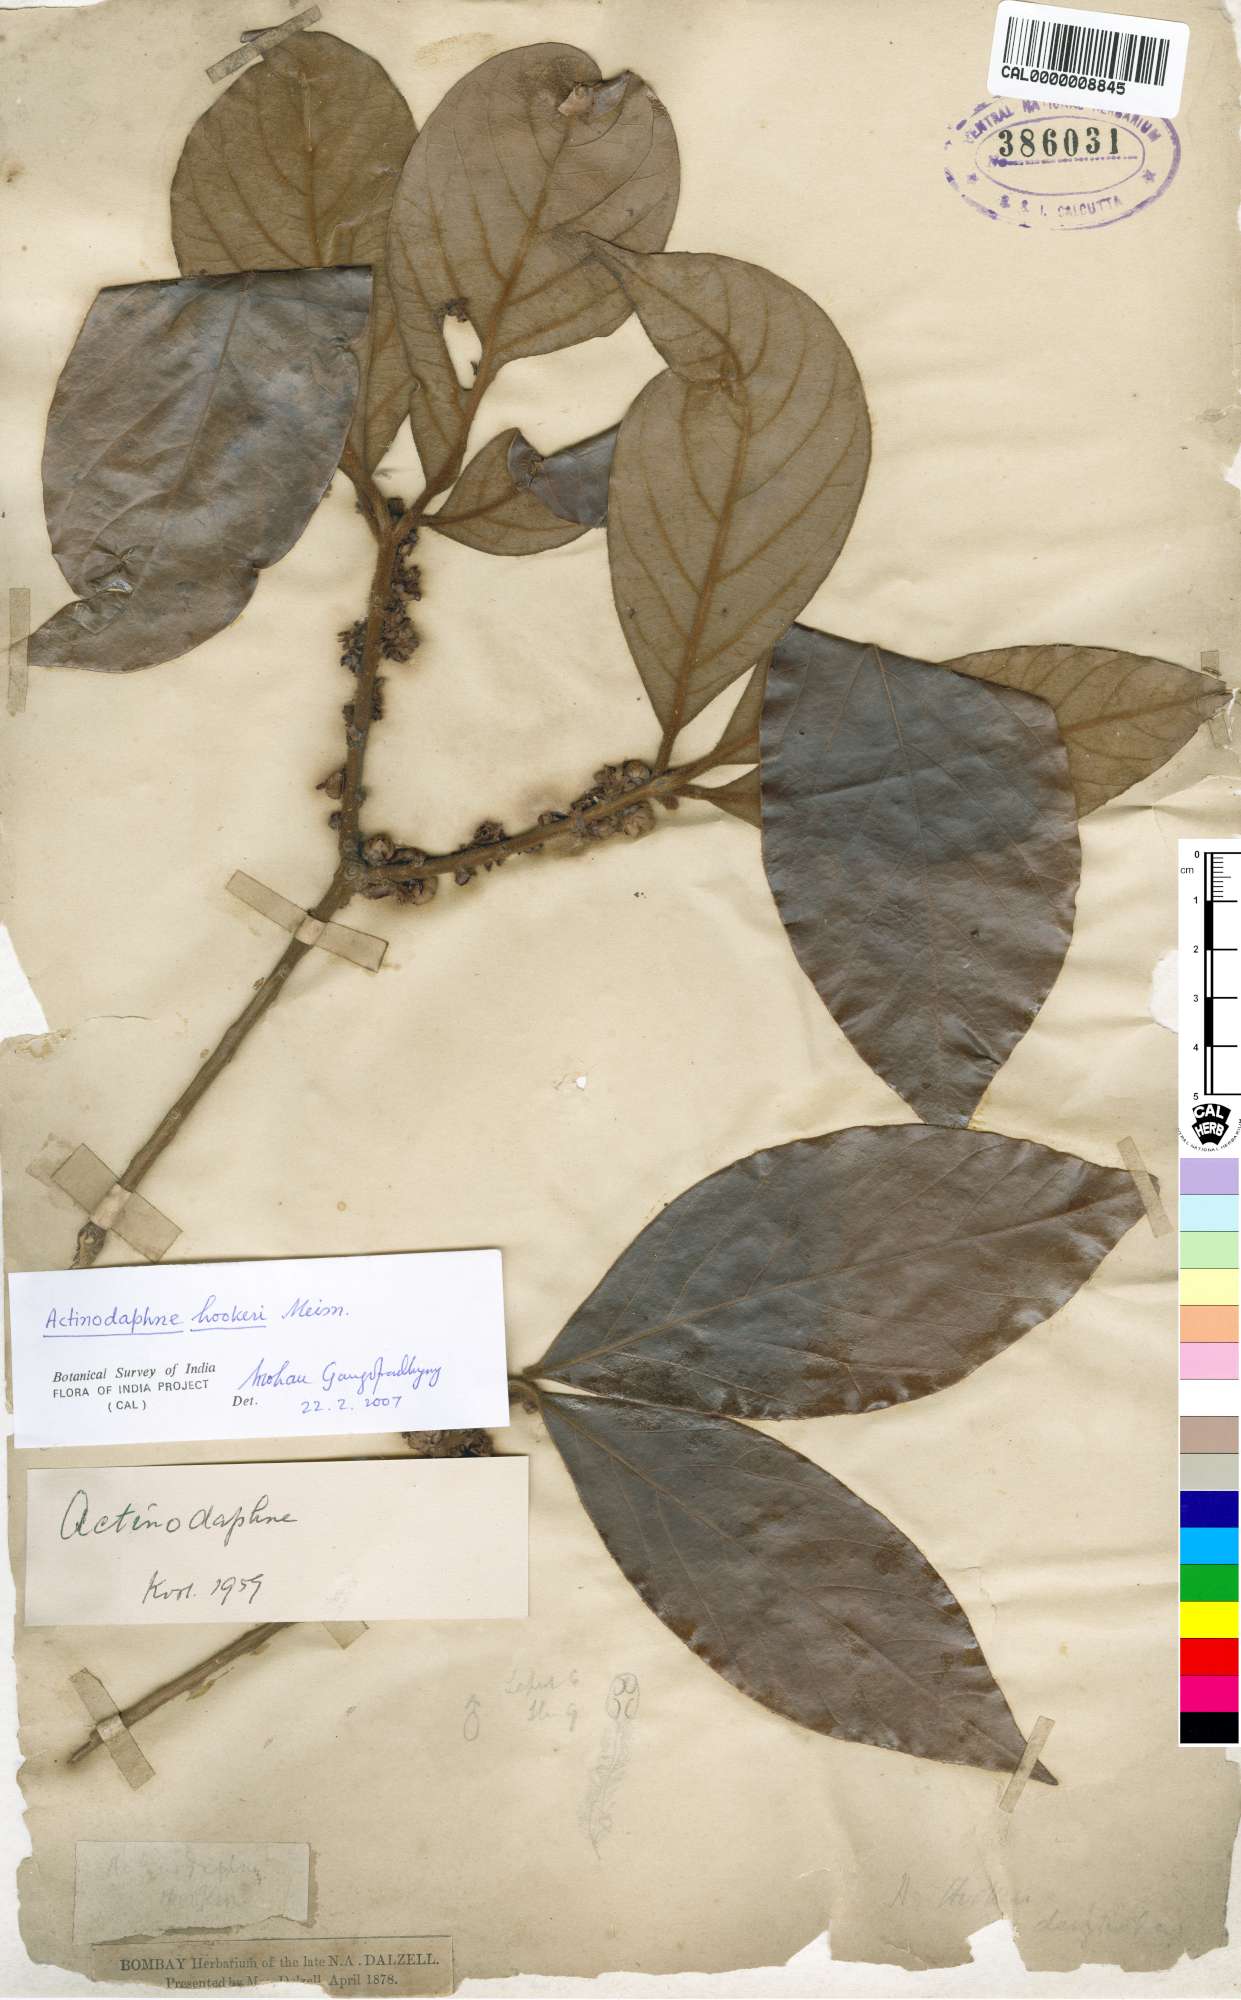 CAL0000008845
CENTRAL NATIONAL HERBARIUM
386031
No
B. S. I. CALCUTTA
0
cm
1
2
3
4
5
CAL
HERB
Actinodaphne hookeri Meissn.
Botanical Survey of India
FLORA OF INDIA PROJECT
(CAL)
Mohan Gangopadhyay
Det. 22. 2. 2007
Actinodaphne
Kost. 1959
Actinodaphne
Hookeri
BOMBAY Herbarium of the late N.A. DALZELL.
Presented by Dalzell April 1878.